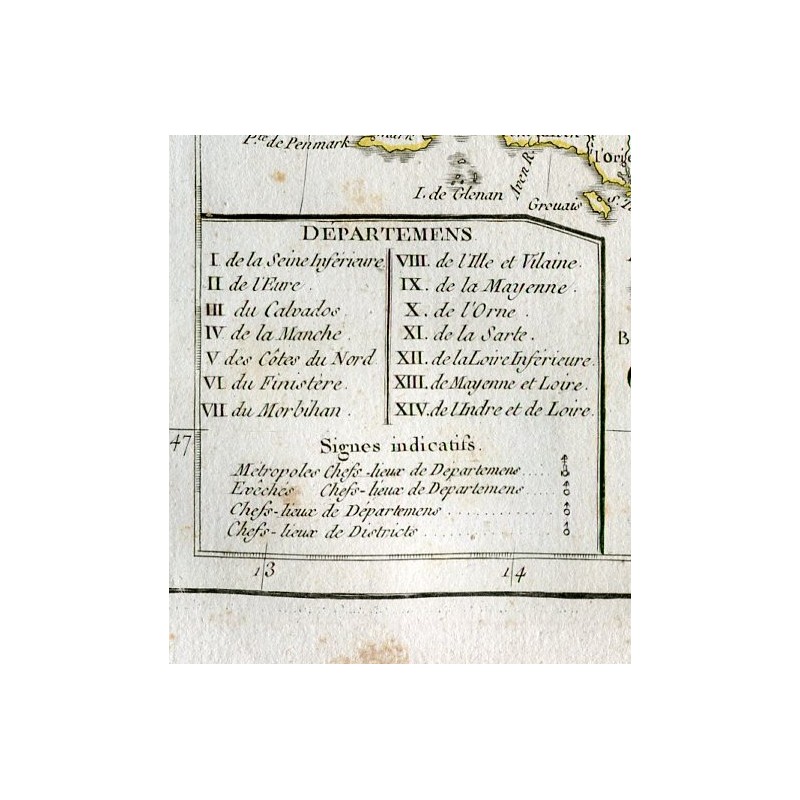 P.te de Penmark
l'Ori
I. de Glenan
Aven R.
Grouais
DÉPARTEMENS.
I. de la Seine Inférieure
II de l'Eure.
III du Calvados.
IV de la Manche.
V des Côtes du Nord
VI. du Finistère.
VII du Morbihan.
VIII. de l'Ille et Vilaine.
IX. de la Mayenne.
X. de l'Orne.
XI. de la Sarte.
XII. de la Loire Inférieure.
XIII. de Mayenne et Loire.
XIV. de l'Indre et de Loire.
B
47
Signes indicatifs.
Métropoles Chefs-lieux de Départemens....
Evêchés Chefs-lieux de Departemens.....
Chefs-lieux de Départemens...........
Chefs-lieux de Districts..............
13
14